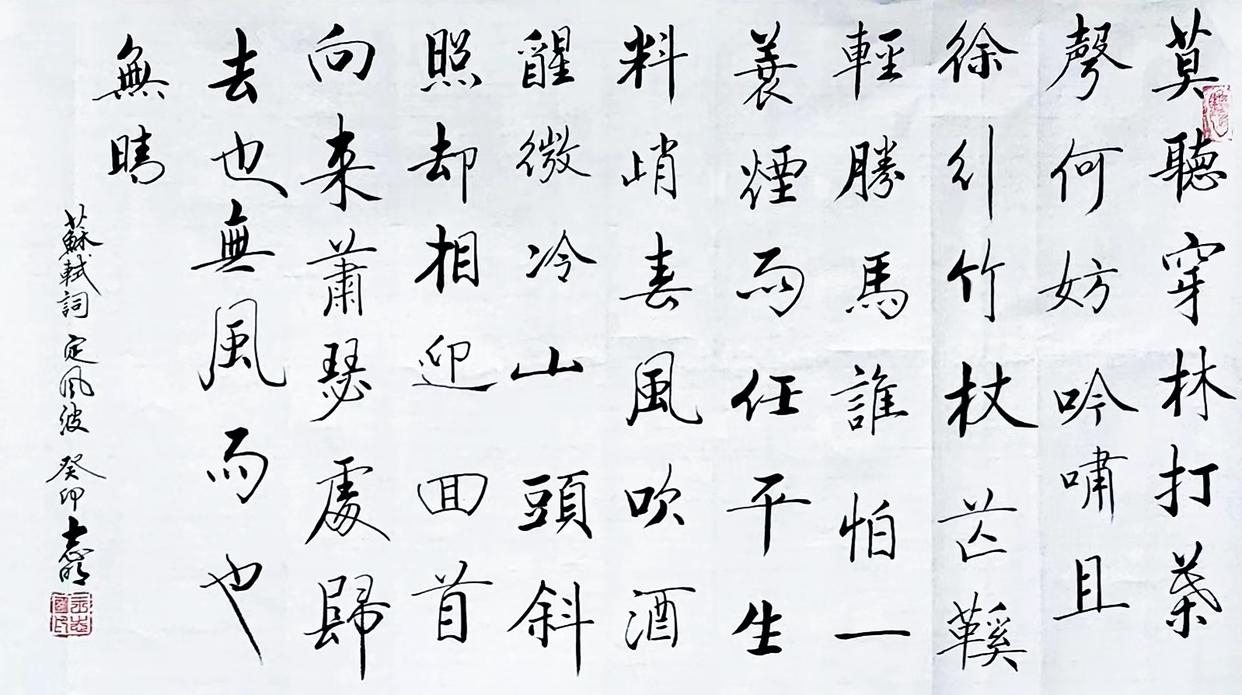 莫聽穿林打葉
聲何妨吟嘯且
徐行竹杖芒鞵
輕勝馬誰怕一
蓑煙雨任平生
料峭春風吹酒
醒微冷山頭斜
照却相迎回首
向來蕭瑟處歸
去也無風雨也
無晴
蘇軾詞 定風波 癸卯 志明